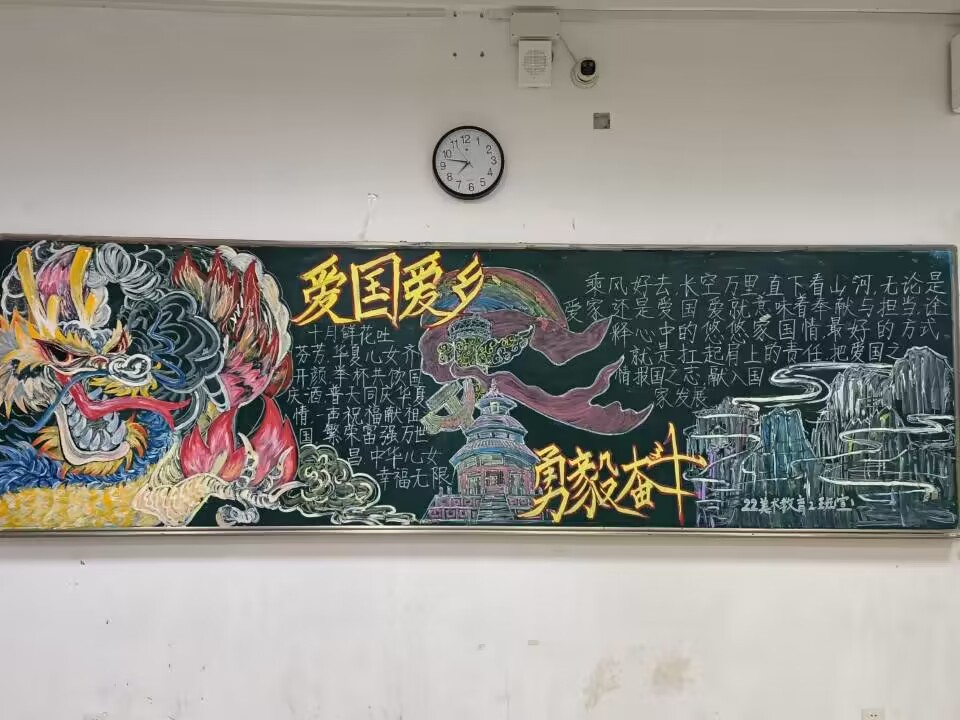 爱国爱乡
十月鲜花吐
芬芳华夏儿女齐
开颜举杯共饮国
庆酒普大同庆华夏
情一声祝福献祖
国繁荣富强万世
昌中华儿女
幸福无限
勇毅奋斗
乘风好去长空万里直下看山河无论是
爱家还是爱国爱就意味着奉献与担当还
释心中的悠悠家国情最好的方式
就是扛起肩上的责任把爱国之
情报国之志献入国
家发展
22美术教育2班宣
12 1 2 3 4 5 6 7 8 9 10 11